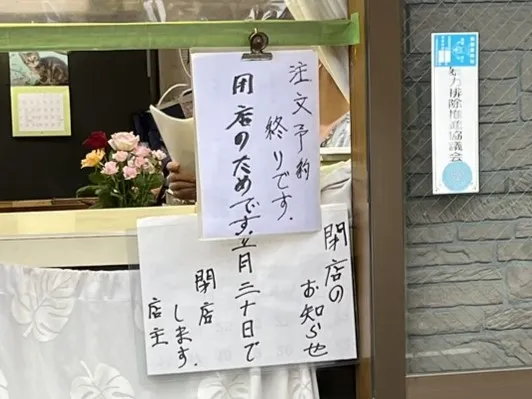 注文予約
終りです.
閉店のためです.
閉店の
お知らせ
月二十日で
閉店
します.
店主
力排除推進協議会